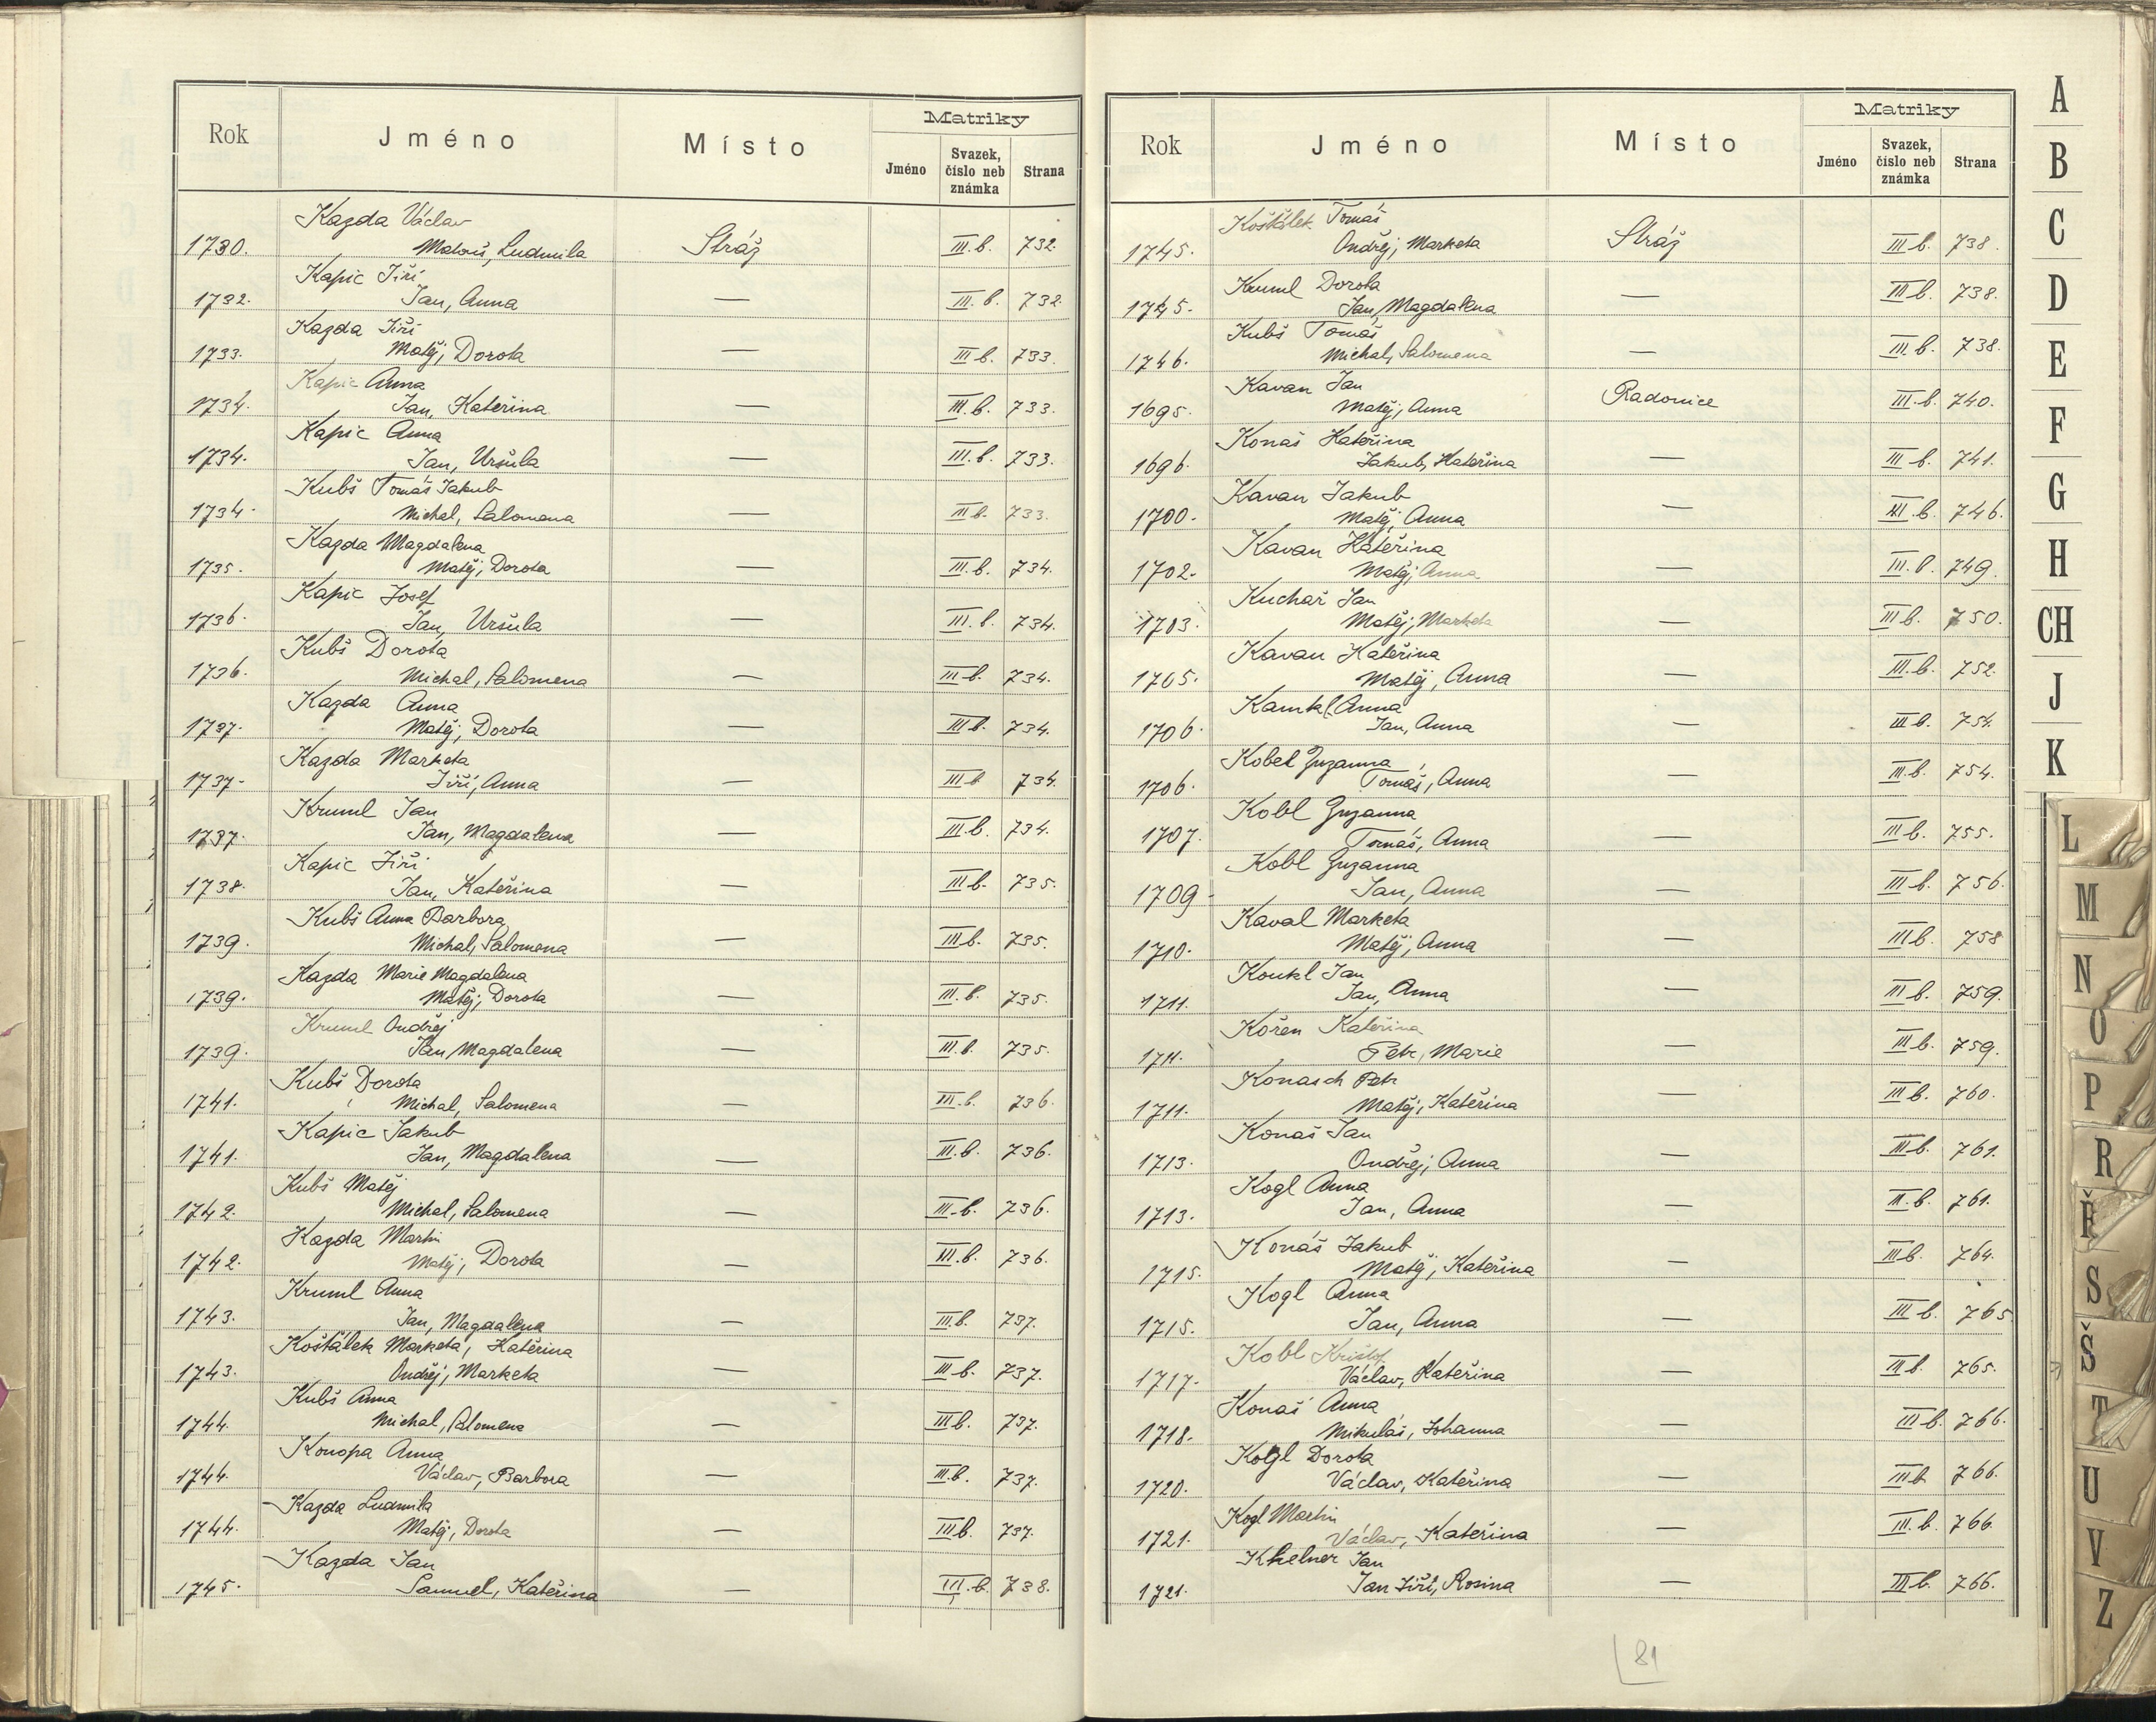 Rok Jméno Místo Matriky
Jméno Svazek, číslo neb známka Strana
Kazda Václav
1730. Matouš, Ludmila Stráž III.b. 732.
Kapic Jiří
1732. Jan, Anna — III.b. 732.
Kazda Jiří
1733. Matěj, Dorota — III.b. 733.
Kapic Anna
1734. Jan, Kateřina — III.b. 733.
Kapic Anna
1734. Jan, Uršula — III.b. 733.
Kubš Tomáš Jakub
1734. Michal, Salomena — III.b. 733.
Kazda Magdalena
1735. Matěj, Dorota — III.b. 734.
Kapic Josef
1736. Jan, Uršula — III.b. 734.
Kubš Dorota
1736. Michal, Salomena — III.b. 734.
Kazda Anna
1737. Matěj, Dorota — III.b. 734.
Kazda Marketa
1737. Jiří, Anna — III.b 734.
Kruml Jan
1737. Jan, Magdalena — III.b. 734.
Kapic Jiří
1738. Jan, Kateřina — III.b. 735.
Kubš Anna Barbora
1739. Michal, Salomena — III.b. 735.
Kazda Marie Magdalena
1739. Matěj, Dorota — III.b. 735.
Kruml Ondřej
1739. Jan, Magdalena — III.b. 735.
Kubš Dorota
1741. Michal, Salomena — III.b. 736.
Kapic Jakub
1741. Jan, Magdalena — III.b. 736.
Kubš Matěj
1742. Michal, Salomena — III.b. 736.
Kazda Martin
1742. Matěj, Dorota — III.b. 736.
Kruml Anna
1743. Jan, Magdalena — III.b. 737.
Košťálek Marketa, Kateřina
1743. Ondřej, Marketa — III.b. 737.
Kubš Anna
1744. Michal, Salomena — III.b. 737.
Konopa Anna
1744. Václav, Barbora — III.b. 737.
Kazda Ludmila
1744. Matěj, Dorota — III.b. 737.
Kazda Jan
1745. Samuel, Kateřina — III.b. 738.
Rok Jméno Místo Matriky
Jméno Svazek, číslo neb známka Strana
Košťálek Tomáš
1745. Ondřej, Marketa Stráž III.b. 738.
Kruml Dorota
1745. Jan, Magdalena — III.b. 738.
Kubš Tomáš
1746. Michal, Salomena — III.b. 738.
Kavan Jan
1695. Matěj, Anna Radonice III.b. 740.
Konaš Kateřina
1696. Jakub, Kateřina — III.b. 741.
Kavan Jakub
1700. Matěj, Anna — III.b. 746.
Kavan Kateřina
1702. Matěj, Anna — III.b. 749.
Kuchař Jan
1703. Matěj, Marketa — III.b. 750.
Kavan Kateřina
1705. Matěj, Anna — III.b. 752.
Kamkl Anna
1706. Jan, Anna — III.b. 754.
Kobel Zuzanna
1706. Tomáš, Anna — III.b. 754.
Kobl Zuzanna
1707. Tomáš, Anna — III.b. 755.
Kobl Zuzanna
1709. Jan, Anna — III.b. 756.
Kaval Marketa
1710. Matěj, Anna — III.b. 758
Koukl Jan
1711. Jan, Anna — III.b. 759.
Kořen Kateřina
1711. Petr, Marie — III.b. 759.
Konasch Petr
1711. Matěj, Kateřina — III.b. 760.
Konaš Jan
1713. Ondřej, Anna — III.b. 761.
Kogl Anna
1713. Jan, Anna — II.b. 761.
Konáš Jakub
1715. Matěj, Kateřina — III.b. 764.
Kogl Anna
1715. Jan, Anna — III.b. 765
Kobl Krištof
1717. Václav, Kateřina — III.b. 765.
Konaš Anna
1718. Mikuláš, Johanna — III.b. 766.
Kogl Dorota
1720. Václav, Kateřina — III.b 766.
Kogl Martin
1721. Václav, Kateřina — III.b. 766.
Khelner Jan
1721. Jan Jiří, Rosina — III.b. 766.
81
A
B
C
D
E
F
G
H
CH
J
K
L
M
N
O
P
R
Ř
S
Š
T
U
V
Z